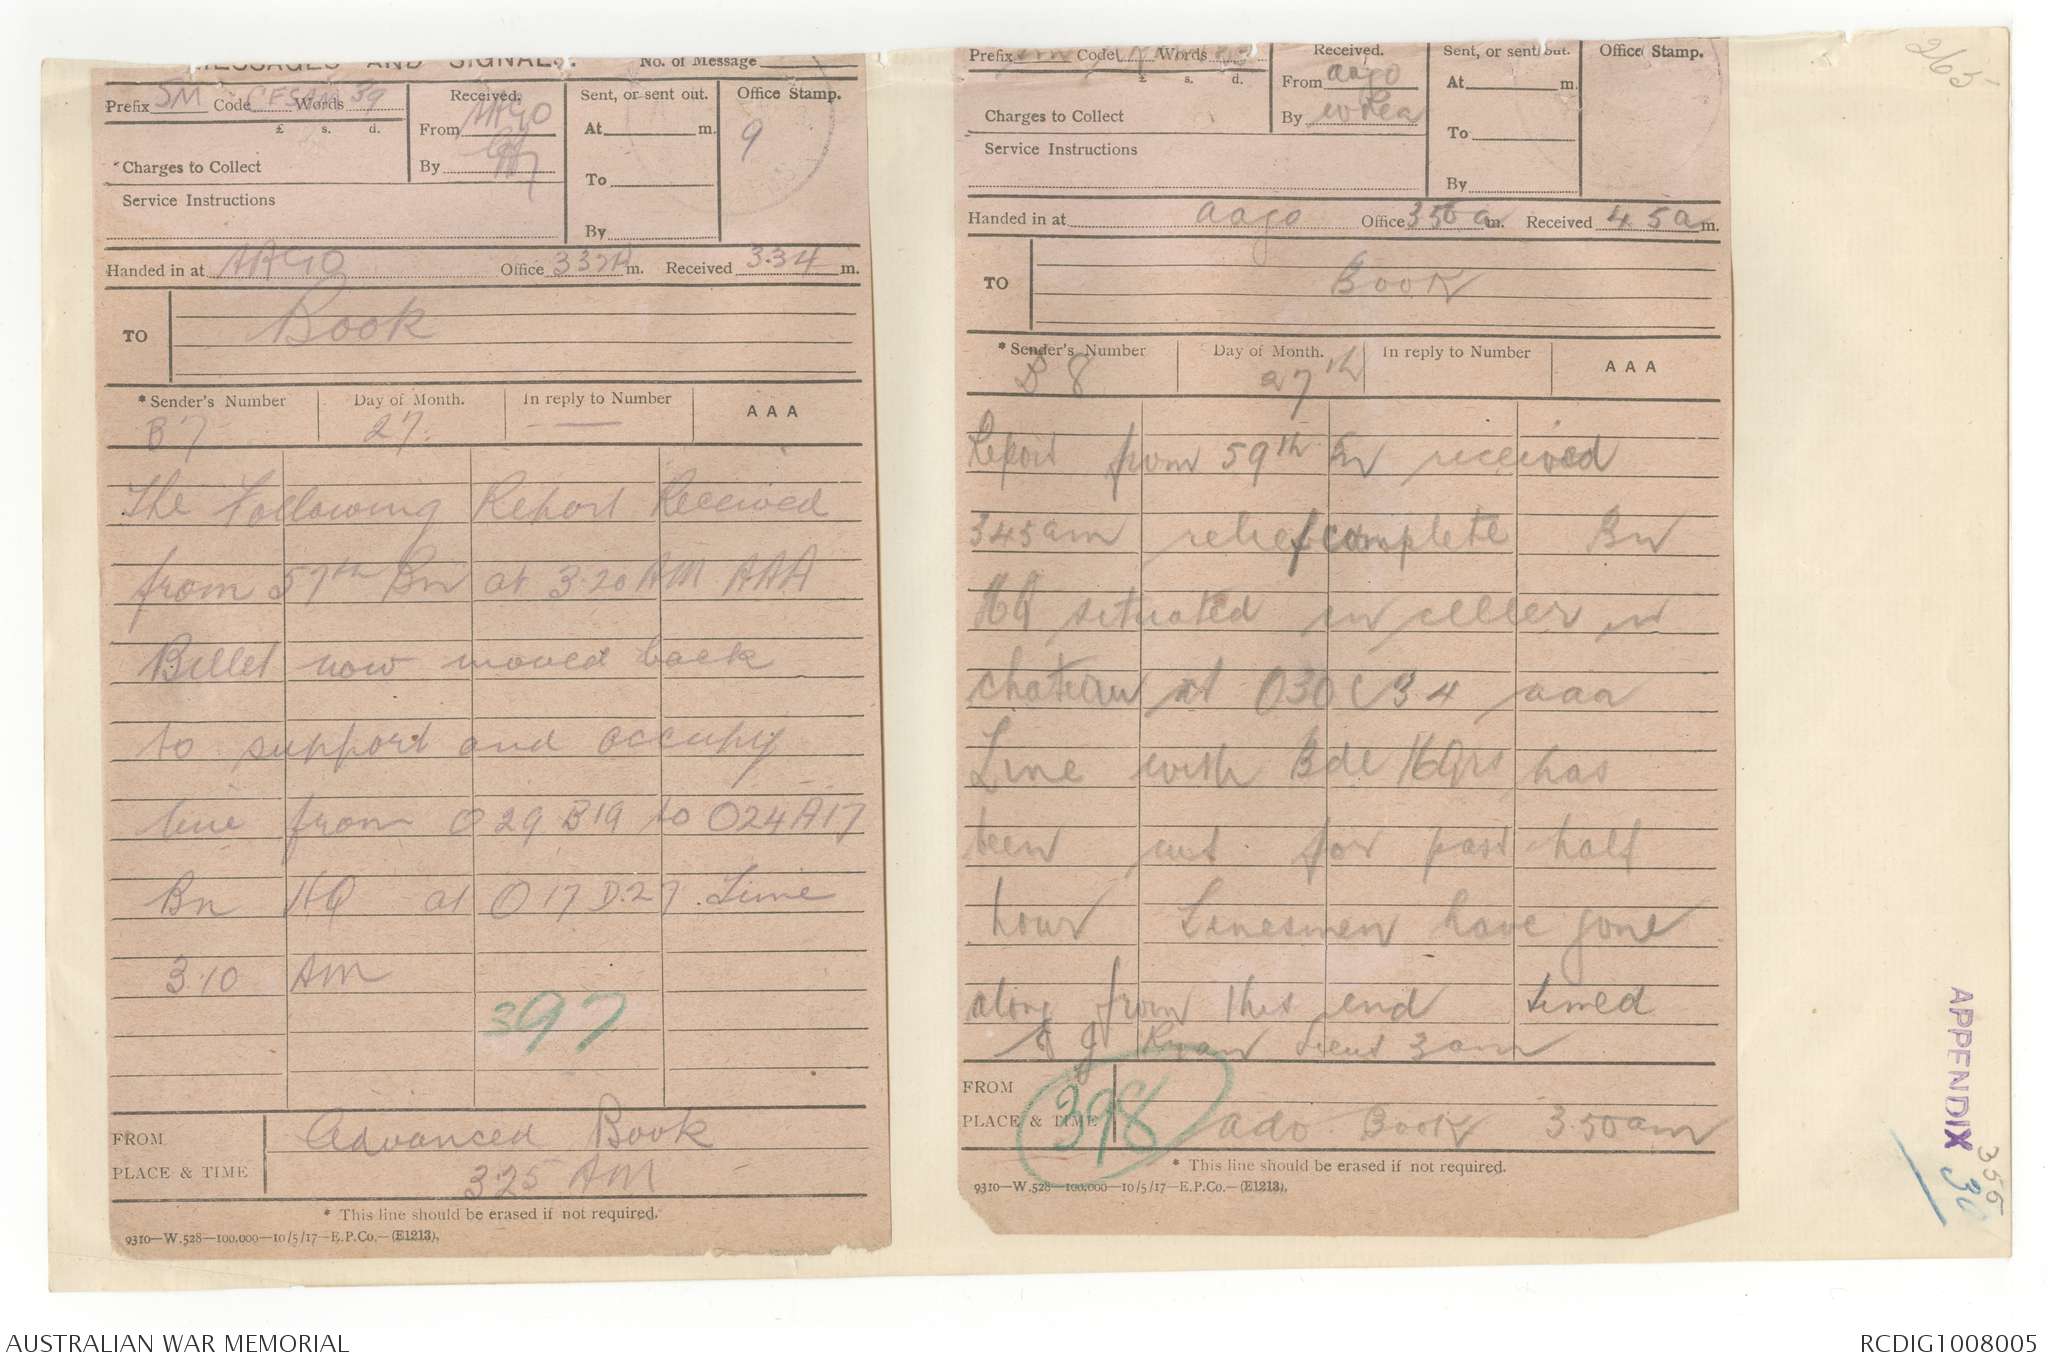 MESSAGES AND SIGNALS.
No. of Message
Prefix SM Code CFSAM Words 39
£ s. d.
*Charges to Collect
Service Instructions
Received.
From ARGO
By
Sent, or sent out.
At m.
To
By
Office Stamp.
9
Handed in at ARGO Office 332A m. Received 3.34 m.
TO Book
*Sender's Number
B7
Day of Month.
27.
In reply to Number
AAA
The Following Report Received
from 57th Bn at 3.20 AM AAA
Billet now moved back
to support and occupy
line from O 29 B19 to O24A17
Bn HQ at O 17 D.27. Time
3.10 AM
397
FROM Advanced Book
PLACE & TIME 3.25 AM
* This line should be erased if not required.
9310—W.528—100,000—10/5/17—E.P.Co.—(E1213).
Prefix sm Code Words
£ s. d.
Charges to Collect
Service Instructions
Received.
From aago
By
Sent, or sent out.
At m.
To
By
Office Stamp.
Handed in at aago Office 350 a m. Received 4.5 a m.
TO Book
*Sender's Number
B 8
Day of Month.
27th
In reply to Number
AAA
Report from 59th Bn received
345am relief complete Bn
HQ situated in celler in
chateau at O30 C 3 4 aaa
Line with Bde HQrs has
been cut for past half
hour Linesmen have gone
along from this end timed
J Ryan Lieut 3am
398
FROM
PLACE & TIME adv. Book 3.50am
* This line should be erased if not required.
9310—W.528—100,000—10/5/17—E.P.Co.—(E1213).
265
APPENDIX 30
355
AUSTRALIAN WAR MEMORIAL
RCDIG1008005